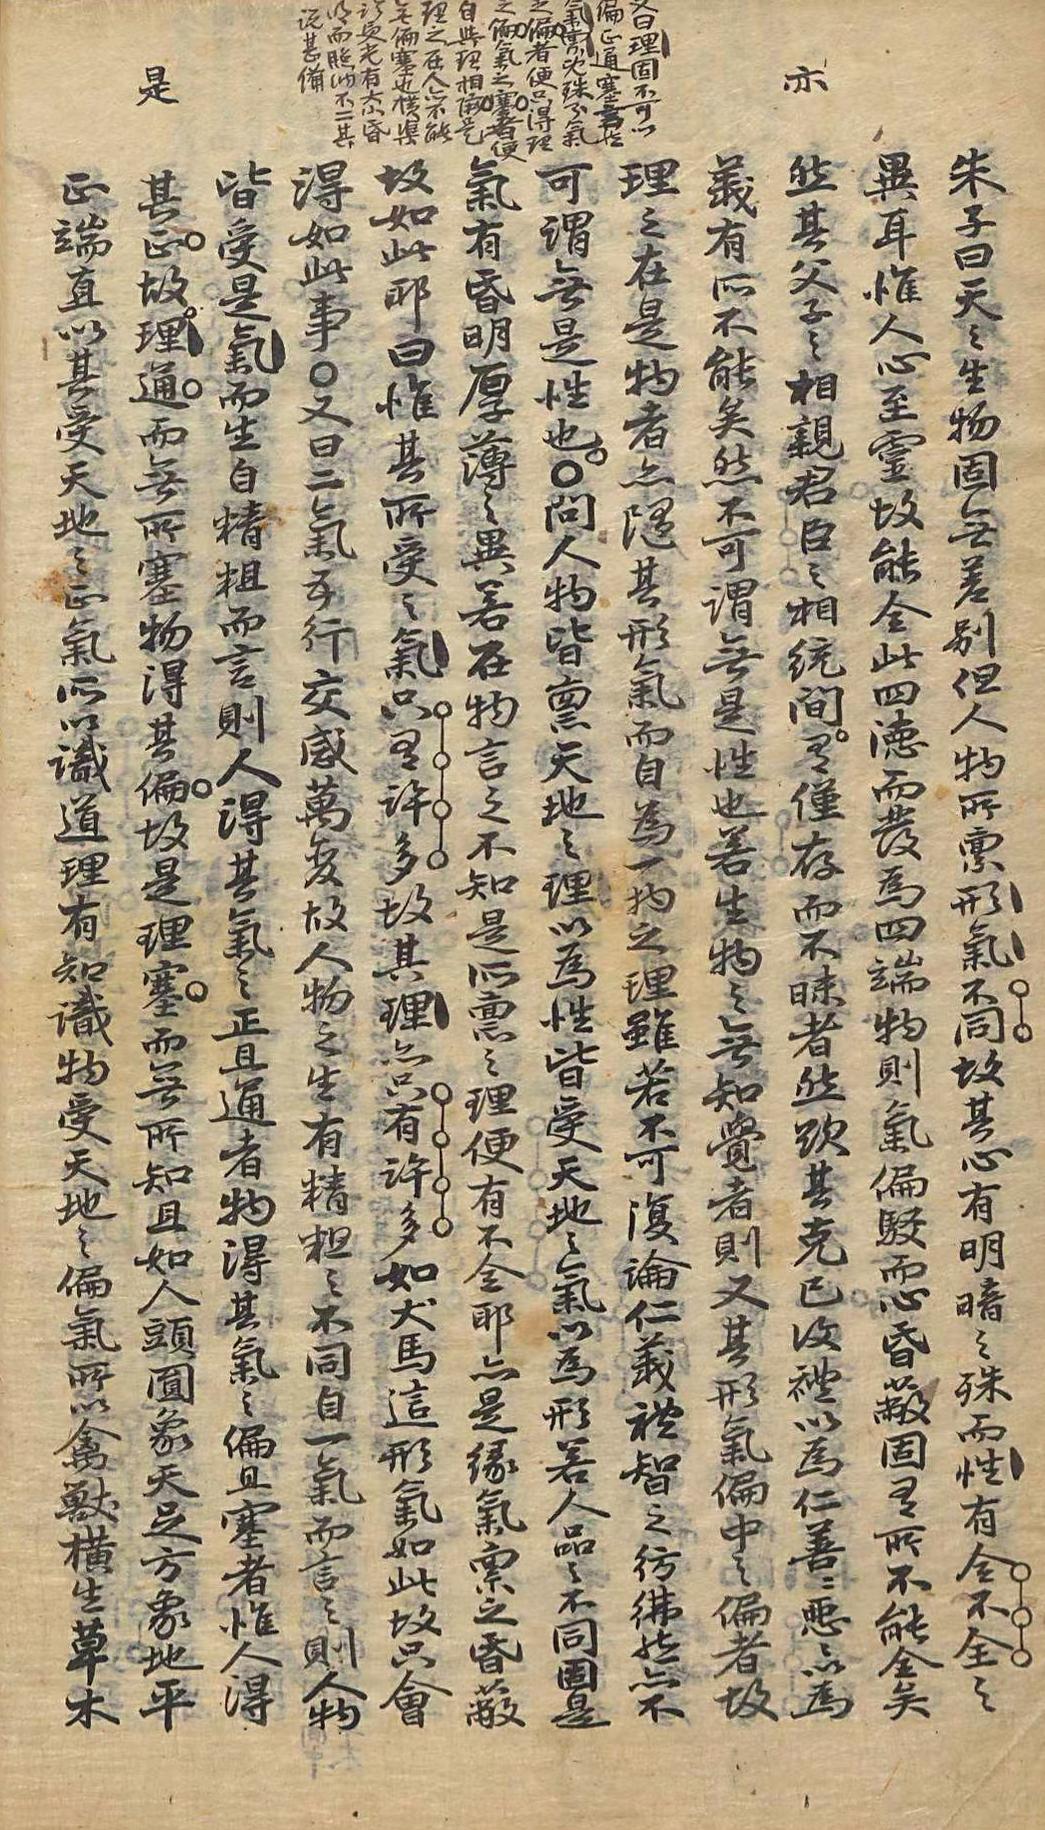 亦
又曰理固不可以
偏正通塞言然
氣禀既殊則氣
之偏者便只得理
之偏氣之塞者便
自與理相隔是
理之在人亦不能
無偏塞也橫渠
說甚備
是
朱子曰天之生物固無差別但人物所禀形氣不同故其心有明暗之殊而性有全不全之
異耳惟人心至靈故能全此四德而發爲四端物則氣偏駁而心昏蔽固有所不能全矣
然其父子之相親君臣之相統間有僅存而不昧者然欲其克己復禮以爲仁善善惡惡以爲
義有所不能矣然不可謂無是性也若生物之無知覺者則又其形氣偏中之偏者故
理之在是物者亦隨其形氣而自爲一物之理雖若不可復論仁義禮智之彷彿然亦不
可謂無是性也○問人物皆禀天地之理以爲性皆受天地之氣以爲形若人品之不同固是
氣有昏明厚薄之異若在物言之不知是所禀之理便有不全耶亦是緣氣禀之昏蔽
故如此耶曰惟其所受之氣只有許多故其理亦只有許多如犬馬這形氣如此故只會
得如此事○又曰二氣五行交感萬變故人物之生有精粗之不同自一氣而言之則人物
皆受是氣而生自精粗而言則人得其氣之正且通者物得其氣之偏且塞者惟人得
其正故理通而無所塞物得其偏故是理塞而無所知且如人頭圓象天足方象地平
正端直以其受天地之正氣所以識道理有知識物受天地之偏氣所以禽獸橫生草木